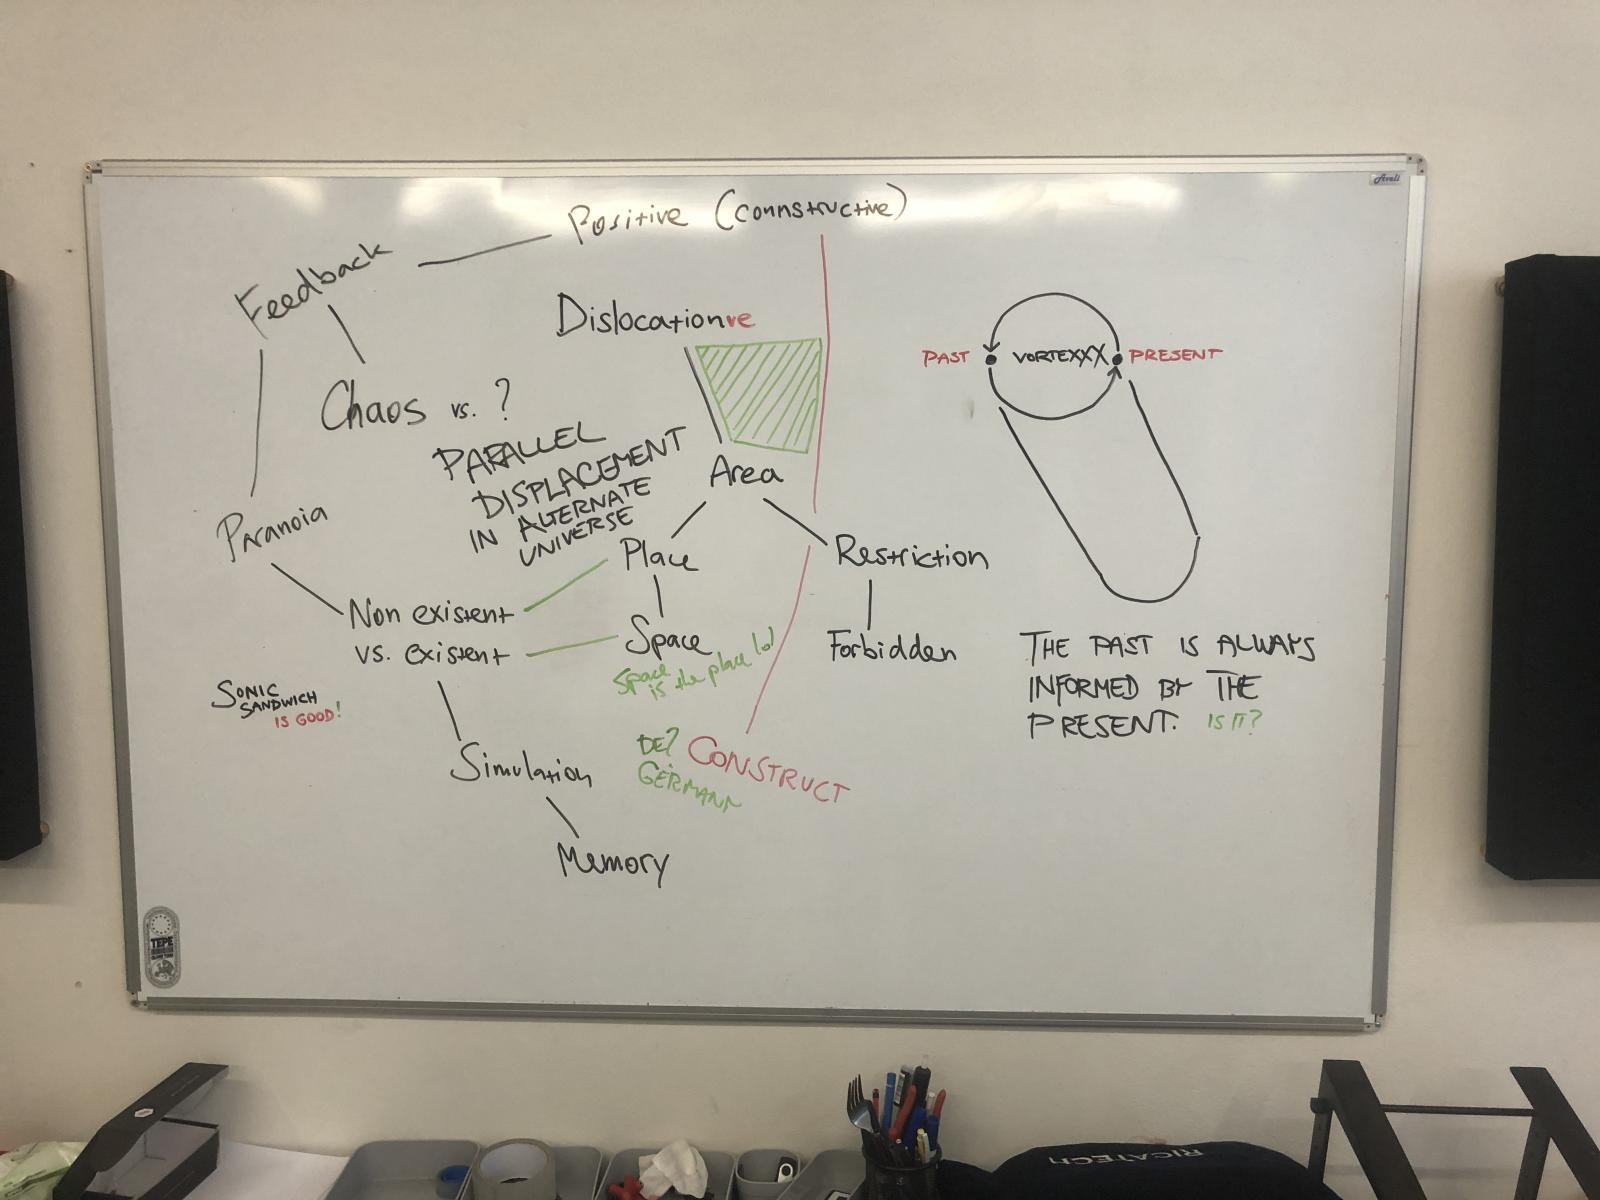 Aveli
Positive (connstructive)
Feedback
Dislocationre
PAST VORTEXXX PRESENT
Chaos vs. ?
PARALLEL
DISPLACEMENT
IN ALTERNATE
UNIVERSE
Area
Paranoia
Place
Restriction
Non existent
vs. existent
Space
Space
is the place lol
Forbidden
THE PAST IS ALWAYS
INFORMED BY THE
PRESENT. IS IT?
SONIC
SANDWICH
IS GOOD!
DE? CONSTRUCT
GERMANN
Simulation
Memory
TEPE
RICATECH